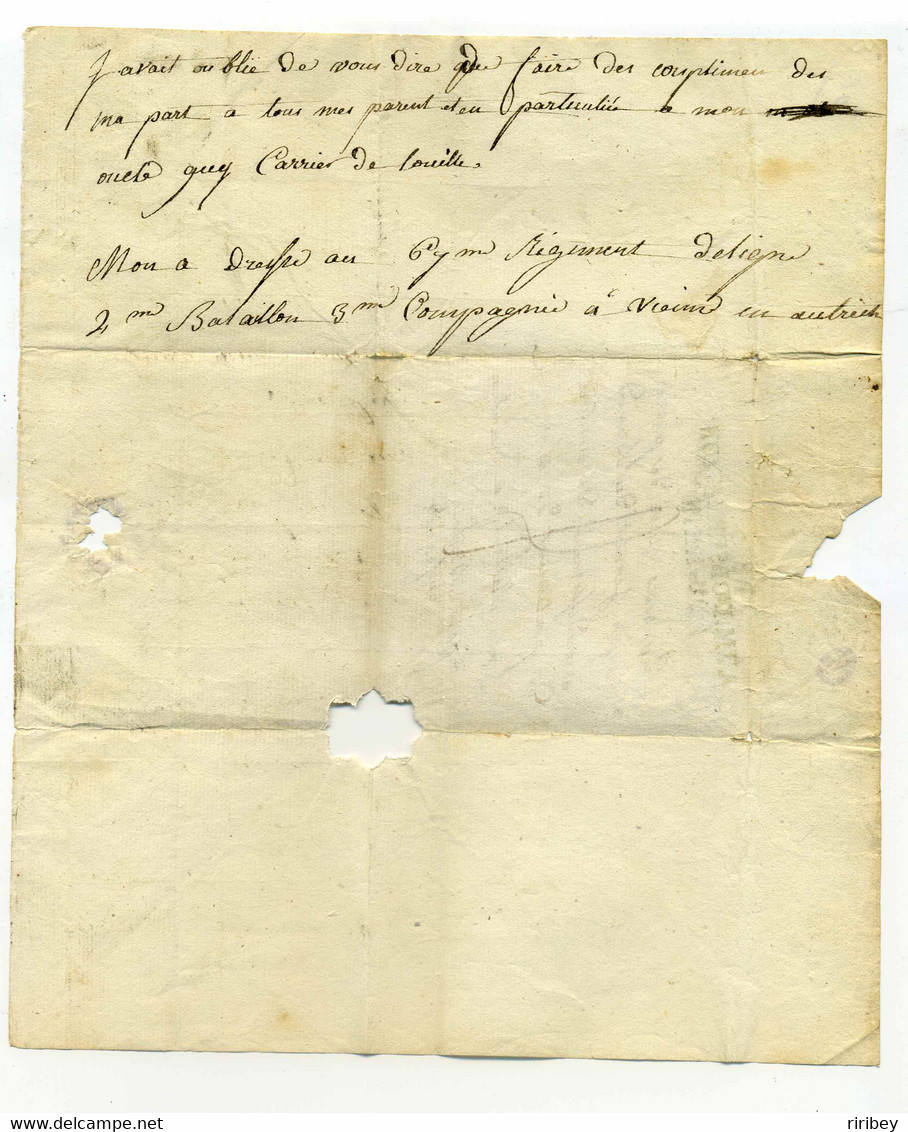 J avait oublié de vous dire que faire des complimen des
ma part a tous mes parent et en particulié a mon
oncle guy Carrier de
Mon a Dresse au Régiment deligne
2 me Bataillon 3 me Compagnie à Vieine en autrich
riribey